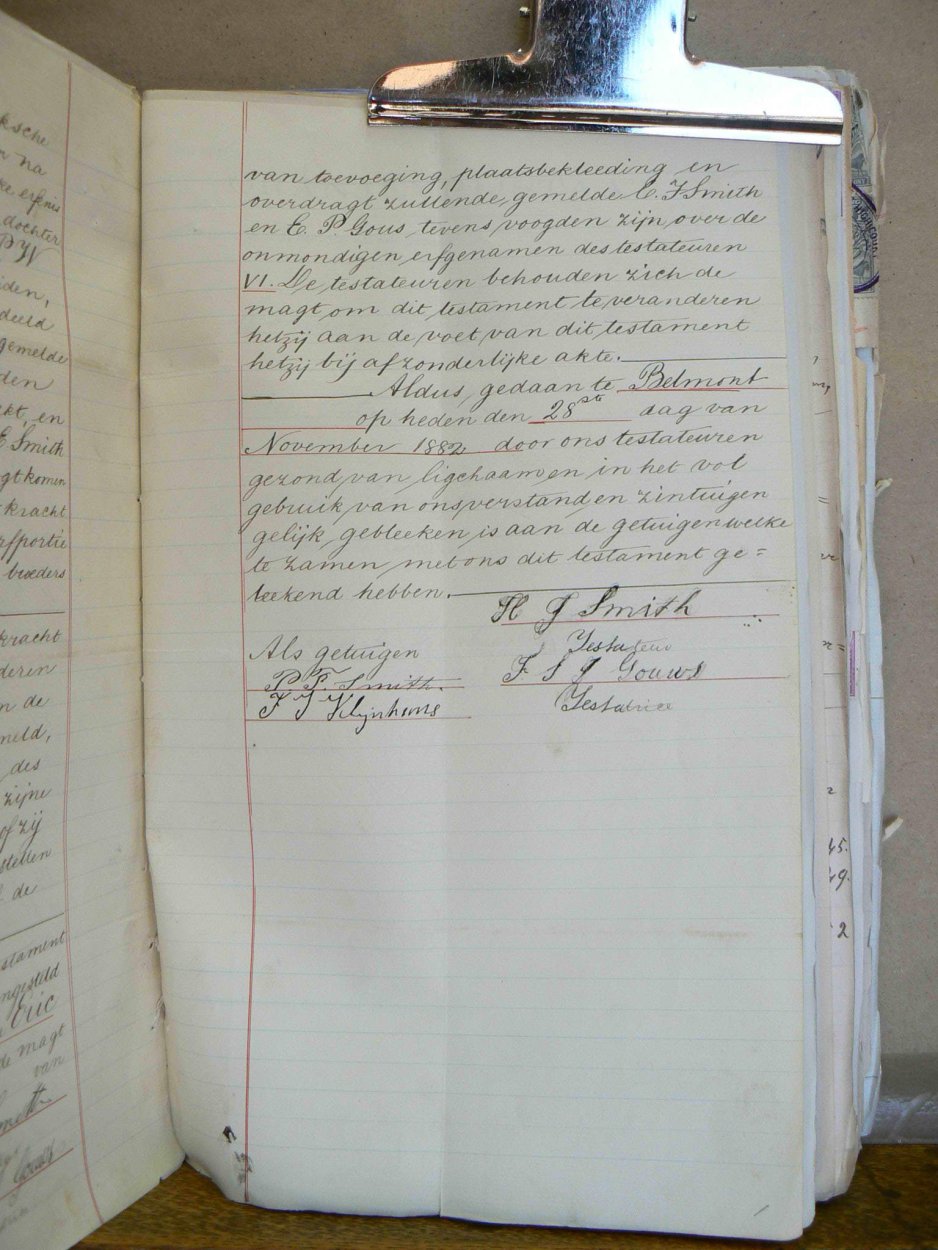 ksche
na
erfenis
dochter
iden,
deeld
gemelde
den
en
E Smith
gt komen
kracht
rfportie
broeders
kracht
deren
n de
meld,
des
zijne
of zij
stellen
de
stament
ngesteld
Eric
de magt
van
Gouws
van toevoeging, plaatsbekleeding en
overdragt zullende, gemelde C. F Smith
en E. P. Gous, tevens voogden zijn over de
onmondigen erfgenamen des testateuren
VI. De testateuren behouden zich de
magt om dit testament te veranderen
hetzij aan de voet van dit testament
hetzij bij afzonderlijke akte.
Aldus, gedaan te Belmont
op heden den 28ste dag van
November 1882 door ons testateuren
gezond van ligchaam en in het vol
gebruik van ons verstand en zintuigen
gelijk gebleeken is aan de getuigen welke
te zamen met ons dit testament ge=
teekend hebben.
H J Smith
Testateur
Als getuigen
P. F. Smith.
F S J Gouws
F J Klijnhans
Testatrice
45.
49.
2